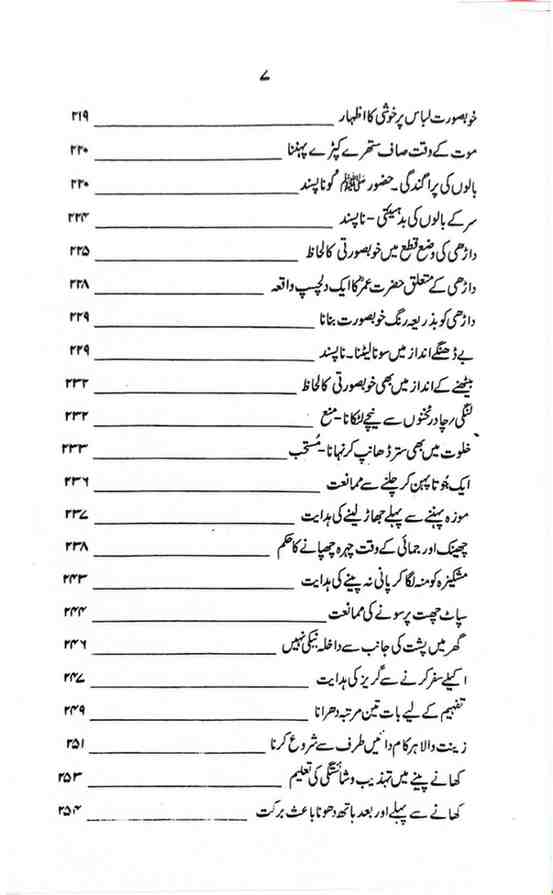 ۷
خوبصورت لباس پر خوشی کا اظہار ۲۱۹
موت کے وقت صاف ستھرے کپڑے پہننا ۲۲۰
بالوں کی پراگندگی ۔ حضور ﷺ کو ناپسند ۲۲۰
سر کے بالوں کی بدہیئتی - ناپسند ۲۲۴
داڑھی کی وضع قطع میں خوبصورتی کا لحاظ ۲۲۵
داڑھی کے متعلق حضرت عمرؓ کا ایک دلچسپ واقعہ ۲۲۸
داڑھی کو بذریعہ رنگ خوبصورت بنانا ۲۲۹
بے ڈھنگے انداز میں سونا لیٹنا ۔ ناپسند ۲۲۹
بیٹھنے کے انداز میں بھی خوبصورتی کا لحاظ ۲۳۲
لنگی؍ چادر ٹخنوں سے نیچے لٹکانا - منع ۲۳۲
خلوت میں بھی ستر ڈھانپ کر نہانا - مُستحب ۲۳۳
ایک جُوتا پہن کر چلنے سے ممانعت ۲۳۶
موزہ پہننے سے پہلے جھاڑ لینے کی ہدایت ۲۳۷
چھینک اور جمائی کے وقت چہرہ چھپانے کا حکم ۲۳۸
مشکیزہ کو منہ لگا کر پانی نہ پینے کی ہدایت ۲۴۳
سپاٹ چھت پر سونے کی ممانعت ۲۴۴
گھر میں پشت کی جانب سے داخلہ نیکی نہیں ۲۴۶
اکیلے سفر کرنے سے گریز کی ہدایت ۲۴۷
تفہیم کے لیے بات تین مرتبہ دھرانا ۲۴۹
زینت والا ہر کام دائیں طرف سے شروع کرنا ۲۵۱
کھانے پینے میں تہذیب و شائستگی کی تعلیم ۲۵۳
کھانے سے پہلے اور بعد ہاتھ دھونا باعث برکت ۲۵۴